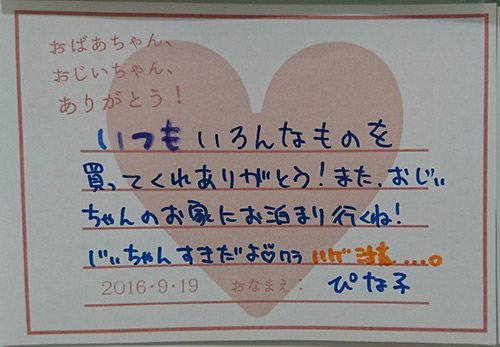 おばあちゃん、
おじいちゃん、
ありがとう！
いつもいろんなものを
買ってくれありがとう！また、おじぃ
ちゃんのお家にお泊まり行くね！
じぃちゃんすきだよ♡
2016・9・19 おなまえ： ぴな子